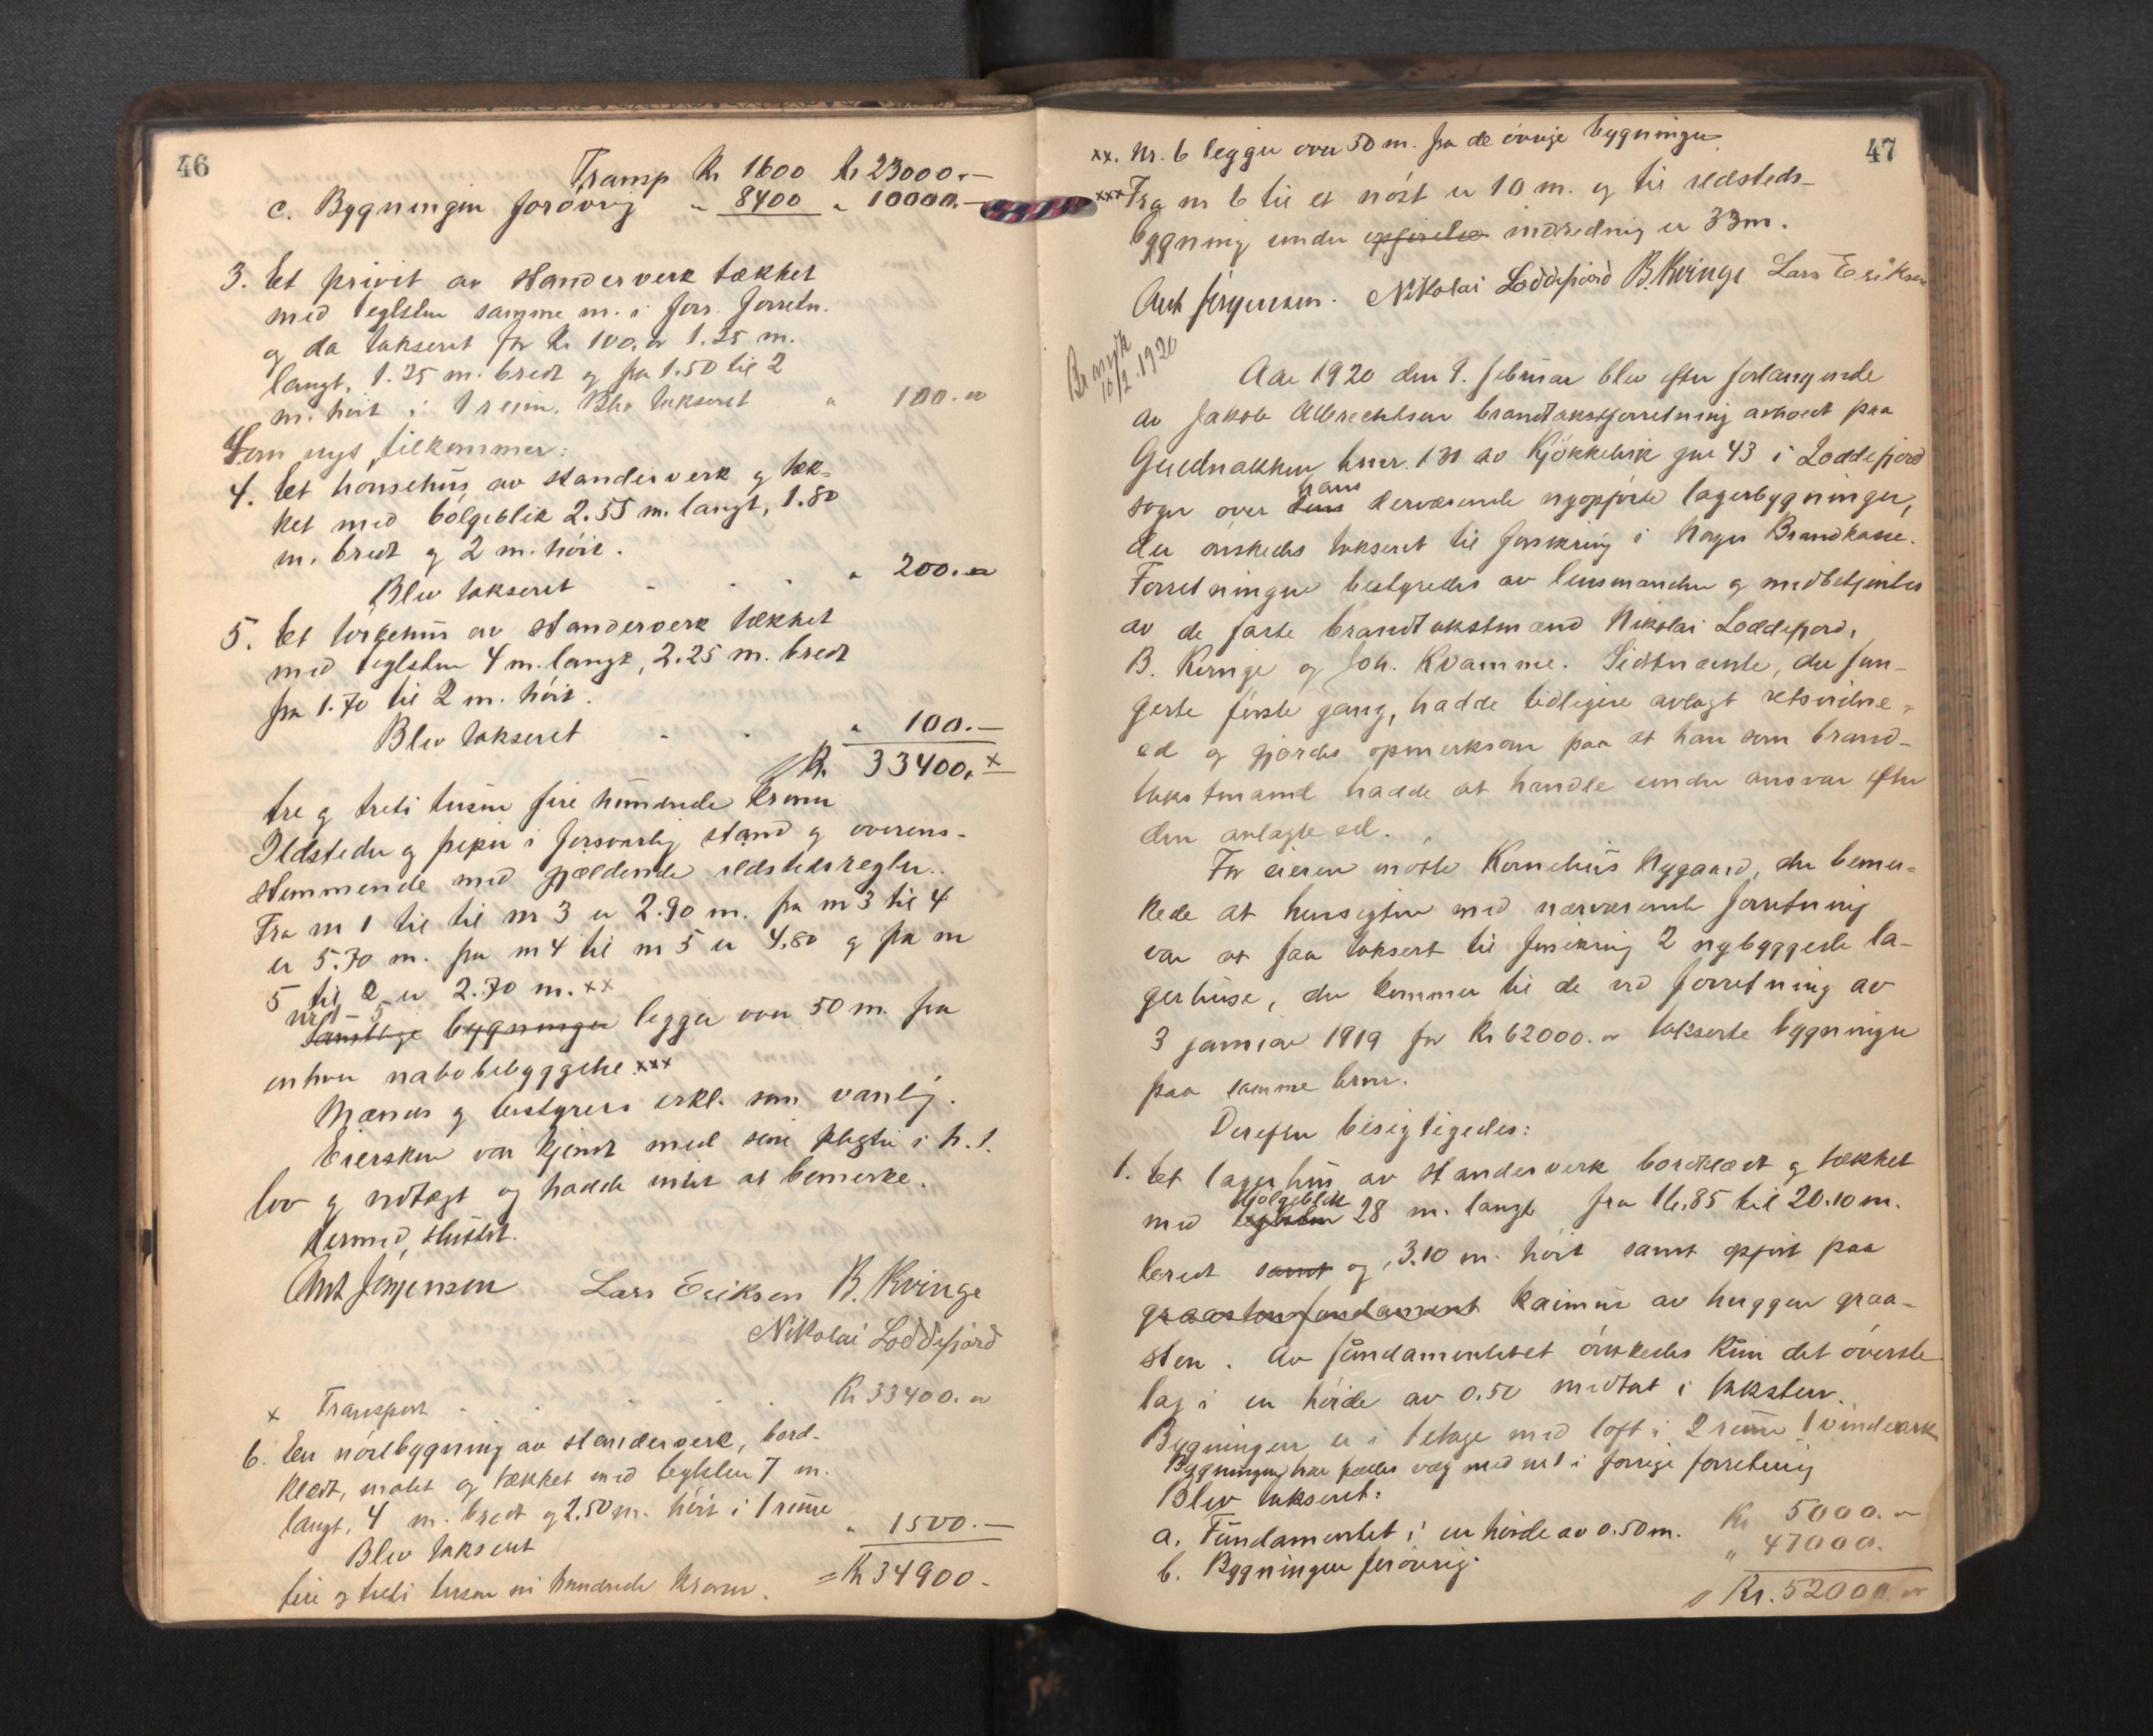 46
Transp Kr 1600 Kr 23000.—
c. Bygningen forøvrig " 8400 " 10000.—
3. Et privit av standerverk tækket
med teglsten samme nr. i forr. forretn.
og da takseret for Kr 100.00 1.25 m.
langt, 1.25 m. bredt og fra 1.50 til 2
m. høit i 1 rum. Blev takseret " 100.00
Som nyt tilkommer:
4. Et hønsehus av standerverk og tæk-
ket med bølgeblik 2.55 m. langt, 1.80
m. bredt og 2 m. høit.
Blev takseret " 200.00
5. Et tørgehus av standerverk tækket
med teglsten 4 m. langt, 2.25 m. bredt
fra 1.70 til 2 m. høit.
Blev takseret " 100.—
Kr. 33400.— x
tre og treti tusen fire hundrede kroner
Ildsteder og piper i forsvarlig stand og overens-
stemmende med gjældende ildstedsregler.
Fra nr 1 til til nr 3 er 2.90 m. fra nr 3 til 4
er 5.70 m. fra nr 4 til nr 5 er 4.80 og fra nr
5 til 2 er 2.70 m. xx
nr 1 - 5
Samtlige bygninger ligger over 50 m. fra
enhver nabobebyggelse. xxx
Mænds og bestyrers erkl. som vanlig.
Eiersken var kjendt med sine pligter i h. t.
lov og vedtægt og hadde intet at bemerke.
Hermed sluttet.
Ant Jørgensen Lars Eriksen B. Kvinge
Nikolai Loddefjord
x Transport - - - - Kr 33400.00
6. En nøstbygning av standerverk, bord-
klædt, malet og tækket med teglsten 7 m.
langt, 4 m. bredt og 2.50 m. høit i 1 rum
Blev takseret " 1500.—
= Kr 34900.-
fire og treti tusen ni hundrede kroner.
47
xx. Nr. 6 ligger over 50 m. fra de øvrige bygninger.
xxx Fra nr 6 til et nøst er 10 m. og til ildsteds-
bygning under opførelse indredning er 33 m.
Ant Jørgensen. Nikolai Loddefjord B. Kvinge Lars Eriksen
10/2 1920
Aar 1920 den 9. februar blev efter forlangende
av Jakob Albrechtsen brandtakstforretning avholdt paa
Gnednakken brnr. 130 av Kjøkkelvik gnr 43 i Loddefjord
sogn over dens hans derværende nyopførte lagerbygninger,
der ønskedes takseret til forsikring i Norges Brandkasse.
Forretningen bestyredes av lensmanden og medbetjentes
av de faste brandtakstmænd Nikolai Loddefjord,
B. Kvinge og Joh. Kvamme. Sidstnævnte, der fun-
gerte første gang, hadde tidligere avlagt retsvidne-
ed og gjordes opmerksom paa at han som brand-
takstmand hadde at handle under ansvar efter
den avlagte ed.
For eieren møtte Kornelius Nygaard, der bemer-
kede at hensigten med nærværende forretning
var at faa taksert til forsikring 2 nybyggede la-
gerhuse, der kommer til de ved forretning av
3 januar 1919 for Kr 62000.00 takserte bygninger
paa samme brnr.
Derefter besigtigedes:
1. Et lagerhus av standerverk bordklædt og tækket
med teglsten bølgeblik 28 m. langt fra 16.85 til 20.10 m.
bredt samt og 3.10 m. høit samt opført paa
graastensfundament kaimur av huggen graa-
sten. Av fundamentet ønskedes kun det øverste
lag i en høide av 0.50 medtat i taksten.
Bygningen er i 1 etage med loft i 2 rum 1 vindeark
Bygningen har fælles væg med nr 1 i forrige forretning
Blev takseret:
a. Fundamentet i en høide av 0.50 m. Kr 5000.00
b. Bygningen forøvrig. " 47000.
Kr. 52000.00